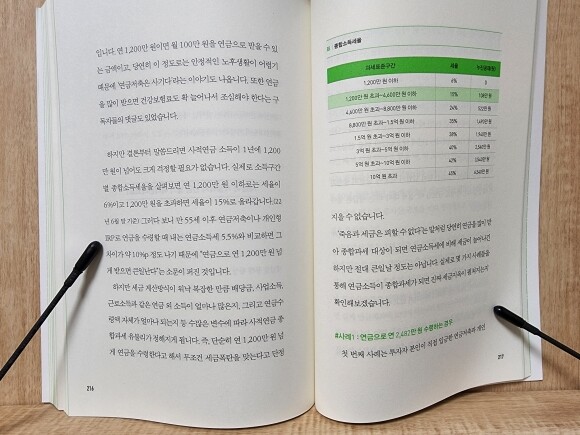 입니다. 연 1,200만 원이면 월 100만 원을 연금으로 받을 수 있
는 금액이고, 당연히 이 정도로는 안정적인 노후생활이 어렵기
때문에 '연금저축은 사기다'라는 이야기도 나옵니다. 또한 연금
을 많이 받으면 건강보험료도 확 늘어나서 조심해야 한다는 구
독자들의 댓글도 있었습니다.
하지만 결론부터 말씀드리면 사적연금 소득이 1년에 1,200
만 원이 넘어도 크게 걱정할 필요가 없습니다. 실제로 소득구간
별 종합소득세율을 살펴보면 연 1,200만 원 이하로는 세율이
6%이고 1,200만 원을 초과하면 세율이 15%로 올라갑니다('22
년 6월 말 기준). 그러다 보니 만 55세 이후 연금저축이나 개인형
IRP로 연금을 수령할 때 내는 연금소득세 5.5%와 비교하면 그
차이가 약 10%p 정도 나기 때문에 "연금으로 연 1,200만 원 넘
게 받으면 큰일난다"는 소문이 퍼진 것입니다.
하지만 세금 계산방식이 워낙 복잡한 만큼 배당금, 사업소득,
근로소득과 같은 연금 외 소득이 얼마나 많은지, 그리고 연금수
령액 자체가 얼마나 되는지 등 수많은 변수에 따라 사적연금 종
합과세 유불리가 정해지게 됩니다. 즉, 단순히 연 1,200만 원 넘
게 연금을 수령한다고 해서 무조건 세금폭탄을 맞는다고 단정
216
종합소득세율
과세표준구간 세율 누진공제(원)
1,200만 원 이하 6% 0
1,200만 원 초과~4,600만 원 이하 15% 108만 원
4,600만 원 초과~8,800만 원 이하 24% 522만 원
8,800만 원 초과~1.5억 원 이하 35% 1,490만 원
1.5억 원 초과~3억 원 이하 38% 1,940만 원
3억 원 초과~5억 원 이하 40% 2,540만 원
5억 원 초과~10억 원 이하 42% 3,540만 원
10억 원 초과 45% 6,540만 원
지을 수 없습니다.
'죽음과 세금은 피할 수 없다'는 말처럼 당연히 연금을 많이 받
아 종합과세 대상이 되면 연금소득세에 비해 세금이 늘어나긴
하지만 절대 큰일날 정도는 아닙니다. 실제로 몇 가지 사례들을
통해 연금소득이 종합과세가 되면 진짜 세금지옥이 펼쳐지는지
확인해보겠습니다.
#사례1 : 연금으로 연 2,482만 원 수령하는 경우
첫 번째 사례는 투자자 본인이 직접 입금한 연금저축과 개인
217